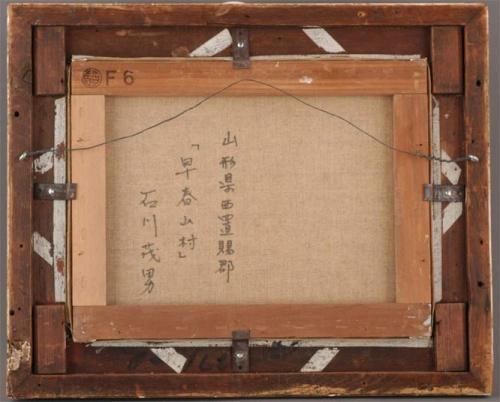 F6
山形県西置賜郡
「早春山村」
石川茂男